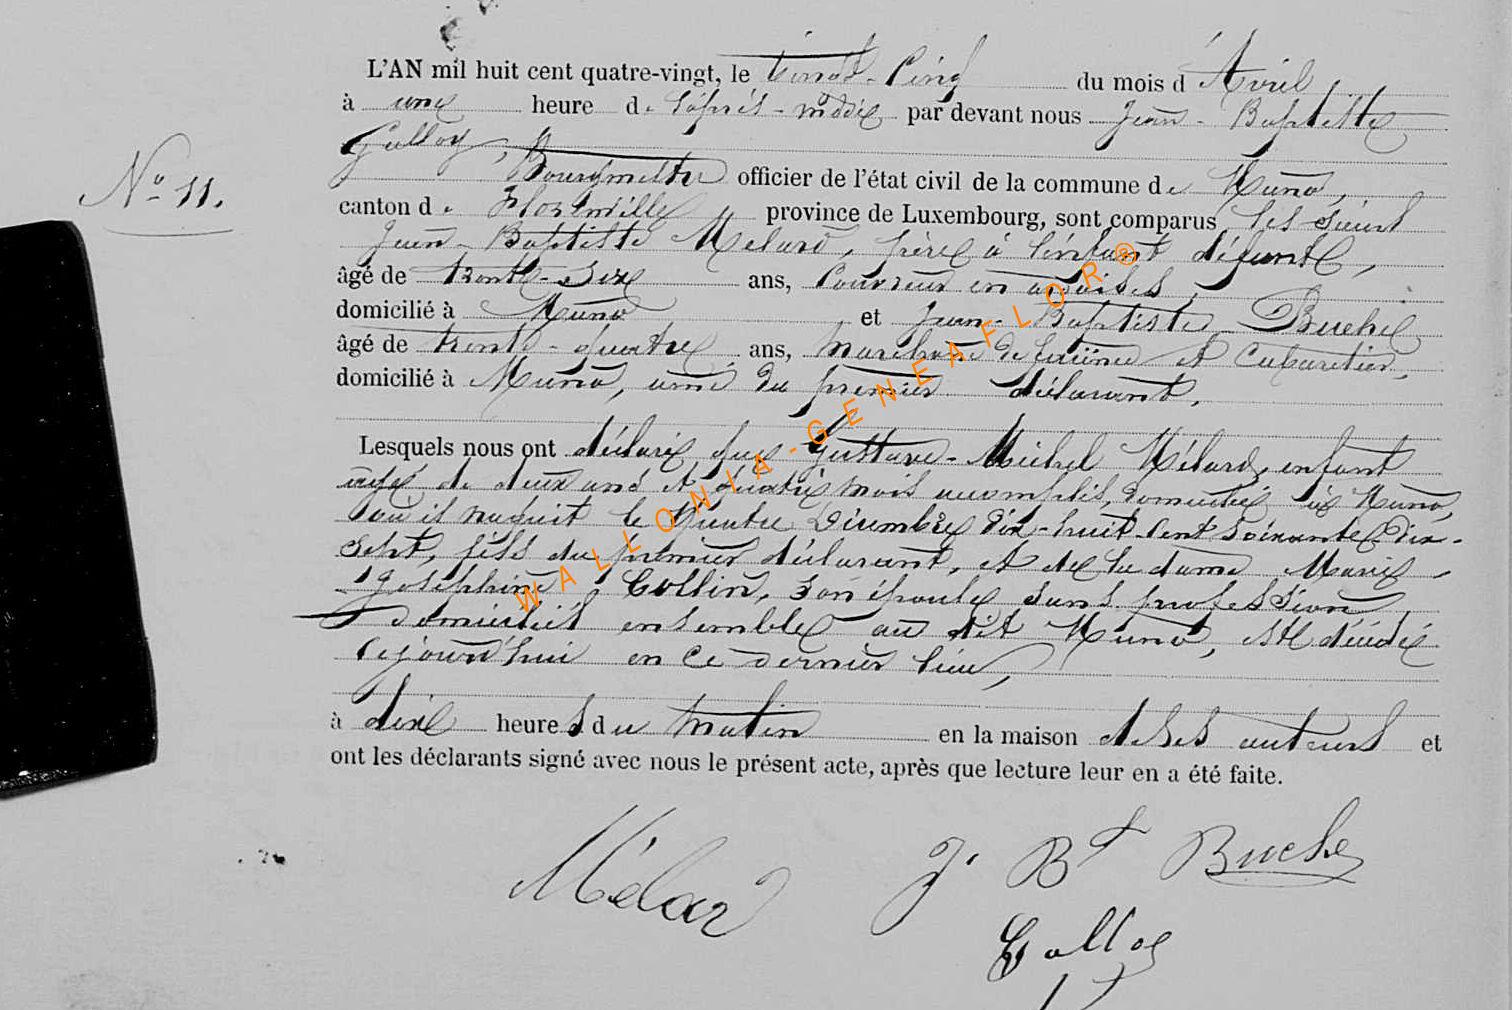 L'AN mil huit cent quatre-vingt, le vingt-Cinq du mois d'Avril
à une heure de l'après-midi par devant nous Jean-Baptiste
Galloy, Bourgmestre officier de l'état civil de la commune de Muno,
canton de Florenville province de Luxembourg, sont comparus les sieurs
Jean-Baptiste Mélard, père à l'enfant défunte,
âgé de trente-six ans, Couvreur en ardoises
domicilié à Muno et Jean-Baptiste Buche
âgé de trente-quatre ans, Marchand de farine et Cabaretier,
domicilié à Muno, ami du premier déclarant,
Lesquels nous ont déclaré que Gustave-Michel Mélard, enfant
âgé de deux ans et quatre mois accomplis, domicilié à Muno,
où il naquit le quatre Décembre dix-huit Cent Soixante Dix-
Sept, fils du premier déclarant, et de la dame Marie
Joséphine Collin, son épouse sans profession,
domiciliés ensemble au dit Muno, est décédé
cejourd'hui en ce dernier lieu,
à dix heures du matin en la maison de ses auteurs et
ont les déclarants signé avec nous le présent acte, après que lecture leur en a été faite.
No 11.
Mélard J. Bt Buche
Galloy
WALLONIA-GENEAFLOR®